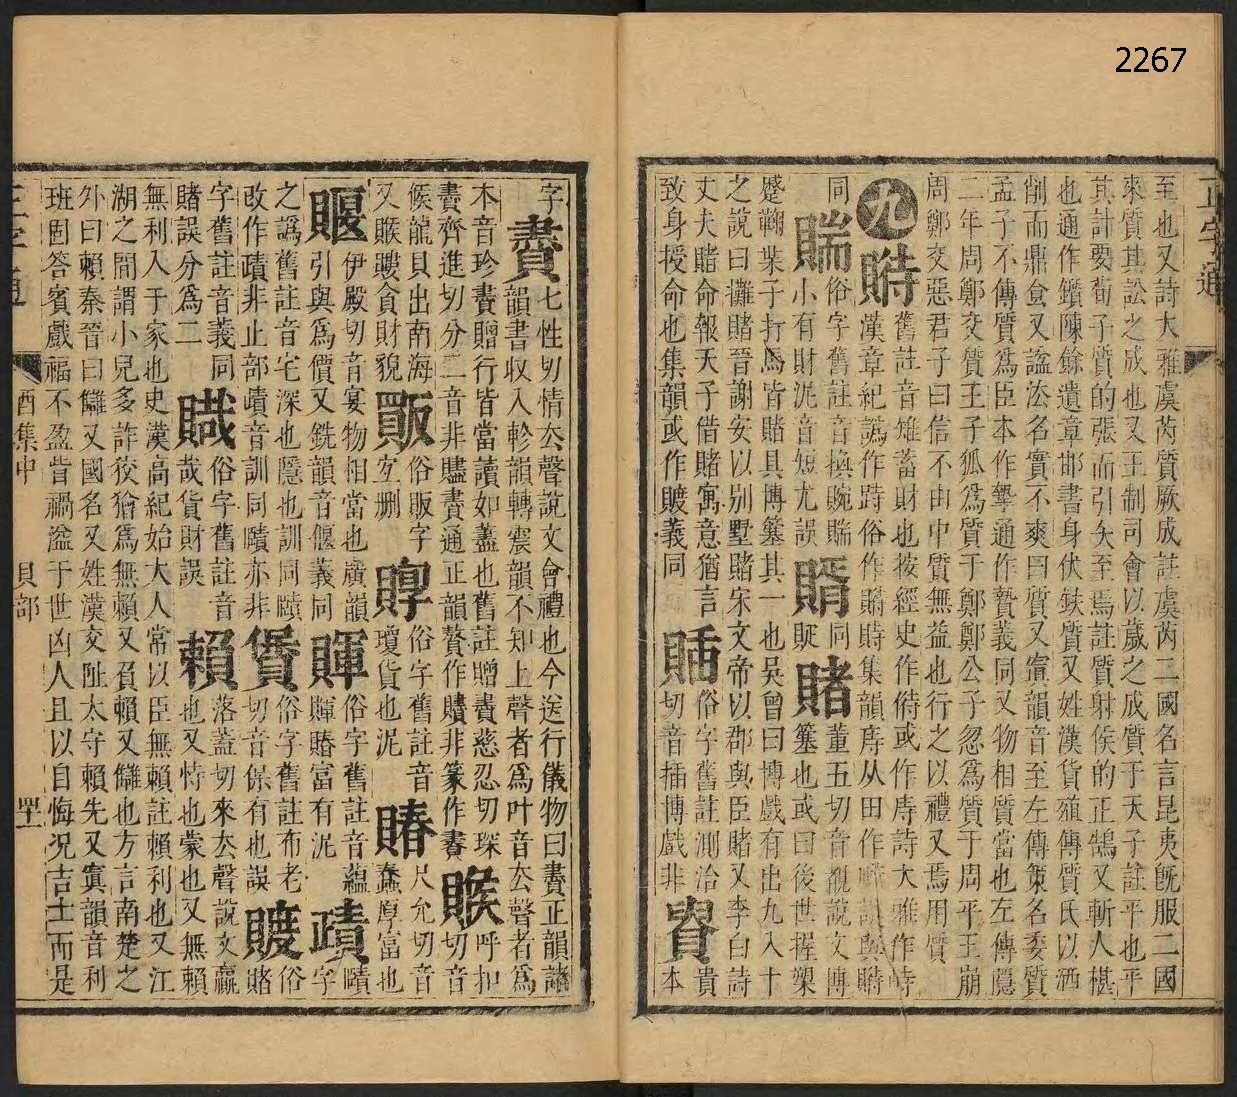 2267
正字通
至也又詩大雅虞芮質厥成註虞芮二國名言昆夷旣服二國
來質其訟之成也又王制司會以歲之成質于天子註平也平
其計要荀子質的張而引矢至焉註質射侯的正鵠又斬人椹
也通作鑕陳餘遺章邯書身伏鈇質又姓漢貨殖傳質氏以洒
削而鼎食又諡法名實不爽曰質又寘韻音至左傳策名委質
孟子不傳質爲臣本作摰通作贄義同又物相質當也左傳隱
二年周鄭交質王子狐爲質于鄭鄭公子忽爲質于周平王崩
周鄭交惡君子曰信不由中質無益也行之以禮又焉用質
九
賗 舊註音雉蓄財也按經史作偫或作庤詩大雅作峙
漢章紀譌作跱俗作賗賗集韻庤从田作畤與賗
同
賘 俗字舊註音換睕賘
小有財泥音短尤誤
㛮 同
賑
賭 董五切音覩說文博
簺也或曰後世握槊
蹙鞠葉子打馬皆賭具博簺其一也吳曾曰博戲有出九入十
之說曰攤賭晉謝安以別墅賭宋文帝以郡與臣賭又李白詩
丈夫賭命報天子借賭寓意猶言
致身授命也集韻或作賥義同
䞕 俗字舊註測洽
切音插博戲非
貴
本
字
賮 七性切情去聲說文會禮也今送行儀物曰賮正韻諸
韻書收入軫韻轉震韻不知上聲者爲叶音去聲者爲
本音珍賮贈行皆當讀如藎也舊註贈賮慈忍切琛
賮齊進切分二音非贐賮通正韻賮作賮非篆作賮
䞀 呼扣
切音
候龍貝出南海
又䞀䞁貪財貌
䝻 俗販字
宐刪
䞍 俗字舊註音
瓊貨也泥
賰 尺允切音
蠢厚富也
賝 伊殿切音宴物相當也廣韻
引與爲價又銑韻音偃義同
賱 俗字舊註音蘊
賱賰富有泥
䝼 賾
字
之譌舊註音宅深也隱也訓同賾
改作䝼非止部䝼音訓同賾亦非
䝿 俗字舊註布老
切音保有也誤
䞄 俗
賭
字舊註音義同
賭誤分爲二
䞃 俗字舊註音
哉貨財誤
賴 落蓋切來去聲說文贏
也又恃也蒙也又無賴
無利入于家也史漢高紀始大人常以臣無賴註賴利也又江
湖之間謂小兒多詐狡猾爲無賴又負賴又讎也方言南楚之
外曰賴秦晉曰讎又國名又姓漢交阯太守賴先又寘韻音利
班固答賓戲福不盈眥禍溢于世凶人且以自悔況吉士而是
正字通
酉集中
貝部